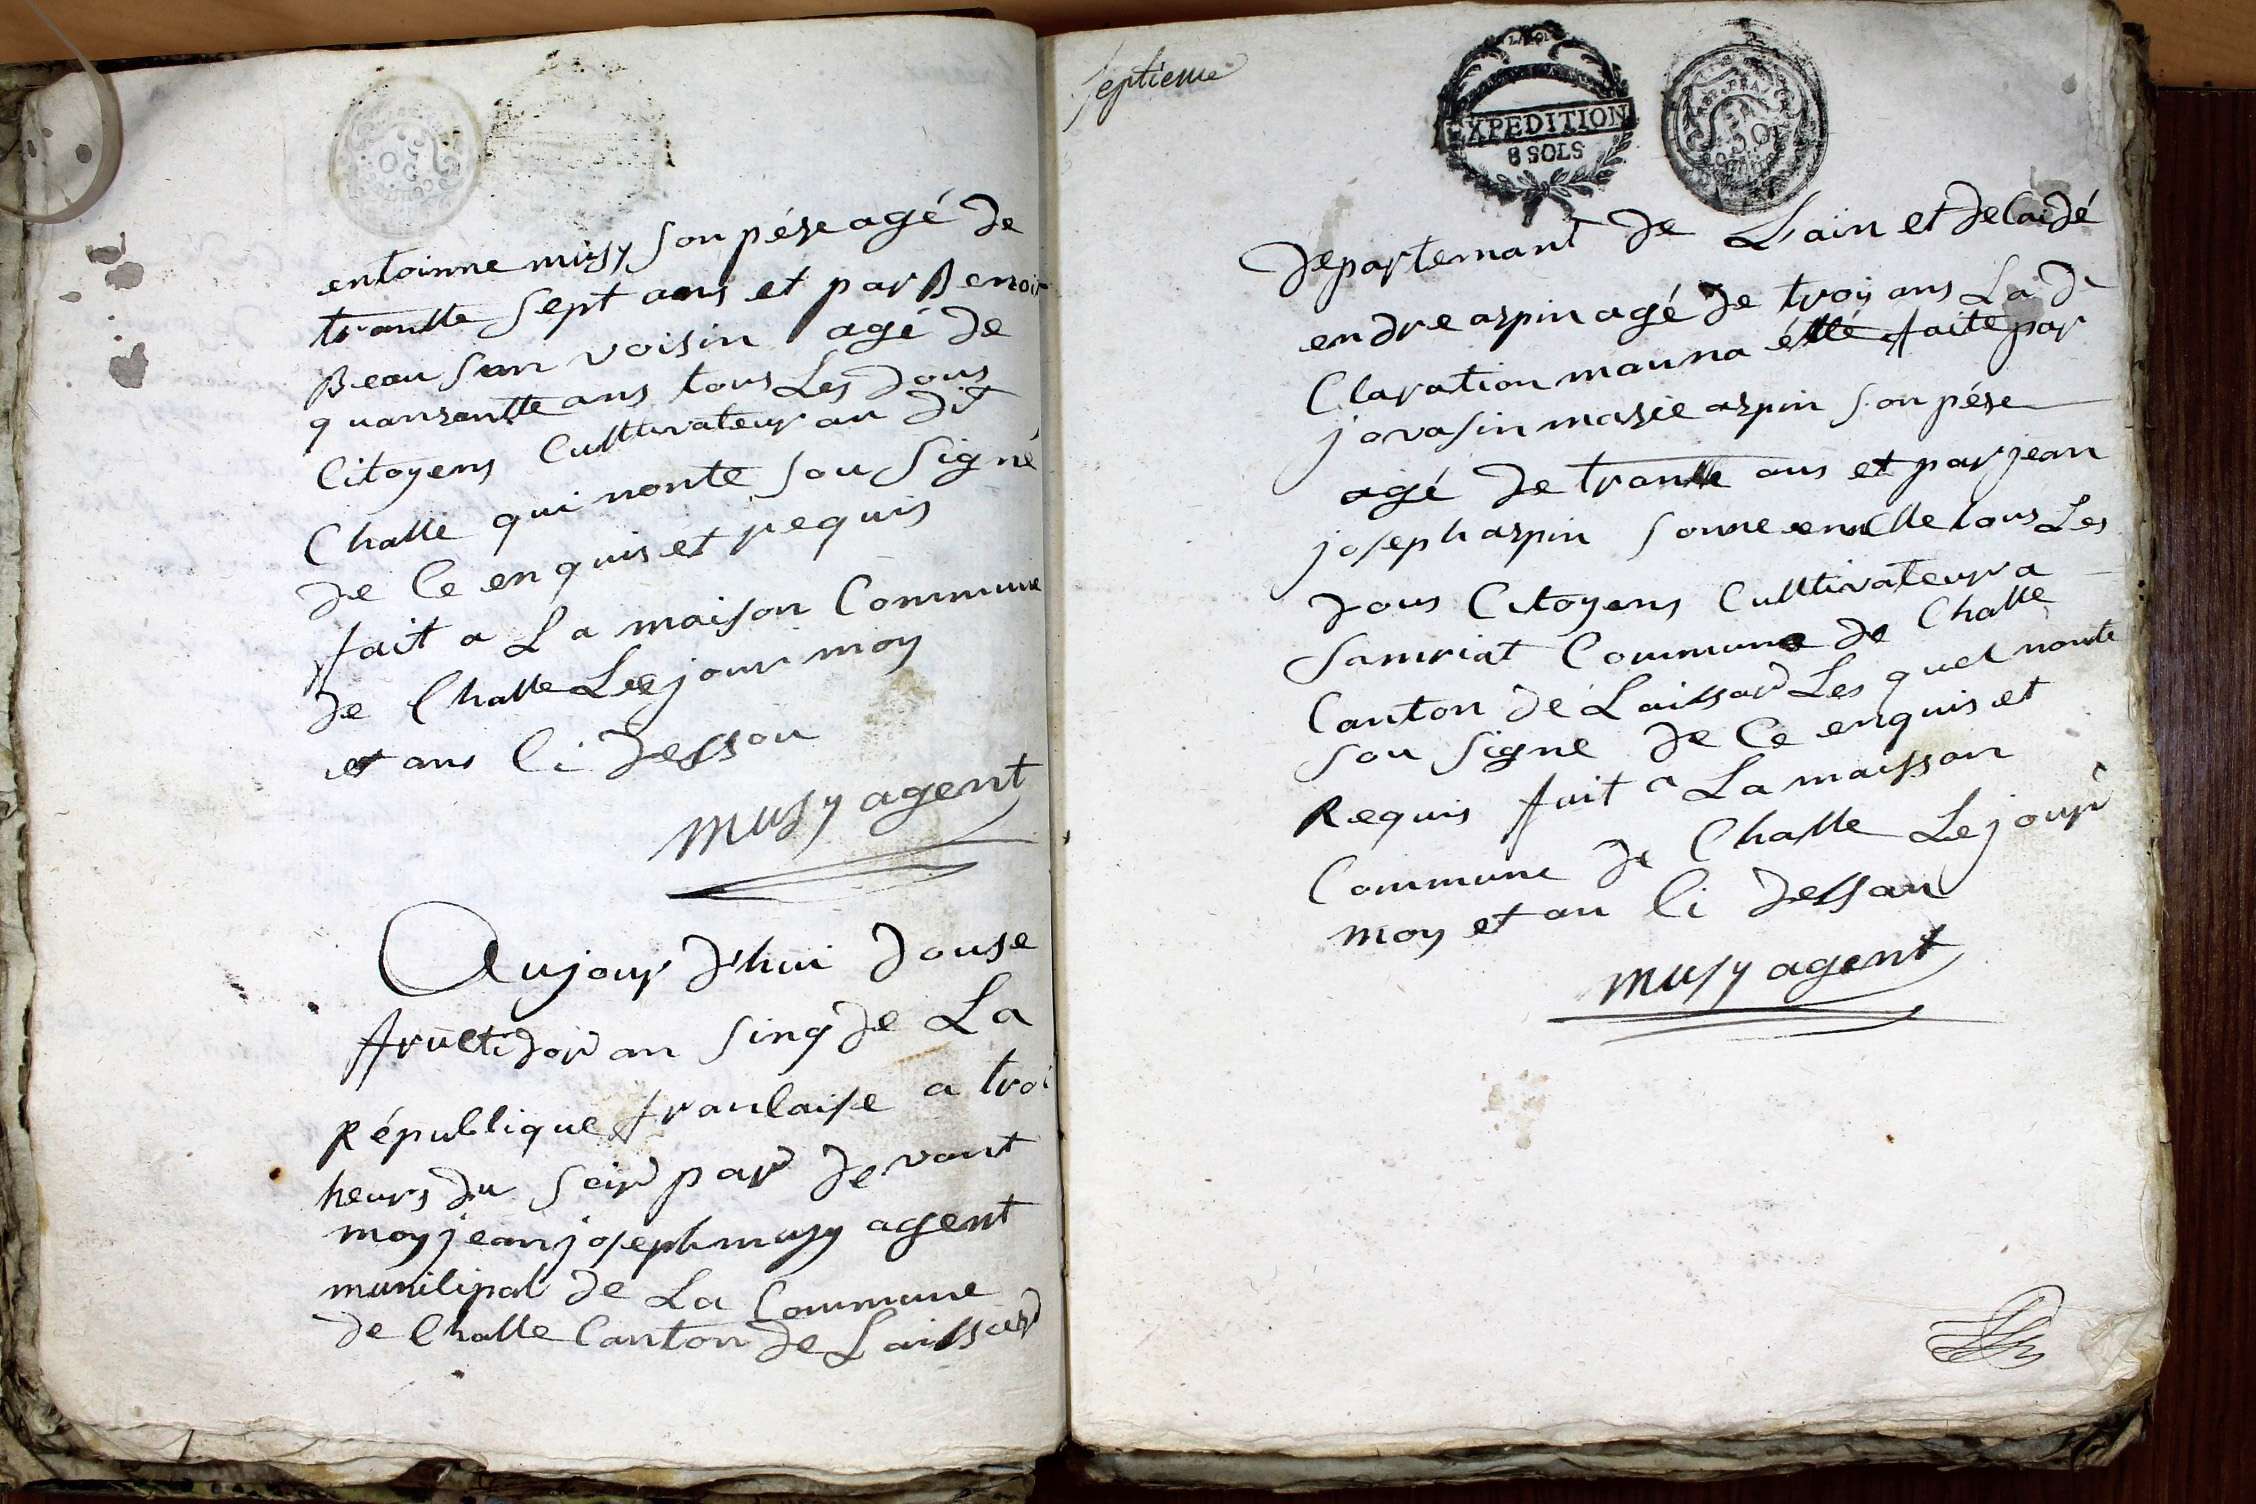 entoinne musy son pére agé de
trantte sept ans et par Benoit
Beau son voisin agé de
quarantte ans tous Les dous
Citoyens Culttivateur au dit
Challe qui nonte sou Signé
de Ce enquis et requis
fait a La maison Commune
de Challe Le jour moy
et ans Ci dessou
musy agent
Aujour d'hui douse
fructidor an sinq de La
République francaise a troi
heurs du soir par devant
moy jean joseph musy agent
municipal de La Commune
de Challe Canton de Laissard
septieme
EXPEDITION
8 SOLS
departemant de L'ain et de laidé
endre aspin agé de trois ans La dé
Claration mauna étté faite par
jovasin marie aspin son pére
agé de trantte ans et par jean
joseph aspin tous Les
dous Citoyens Culttivateur a
Samriat Commune de Challe
Canton de Laissard Les quel nonte
sou signe de Ce enquis et
Requis fait a La maisson
Commune de Challe Le jour
moy et an Ci dessau
musy agent